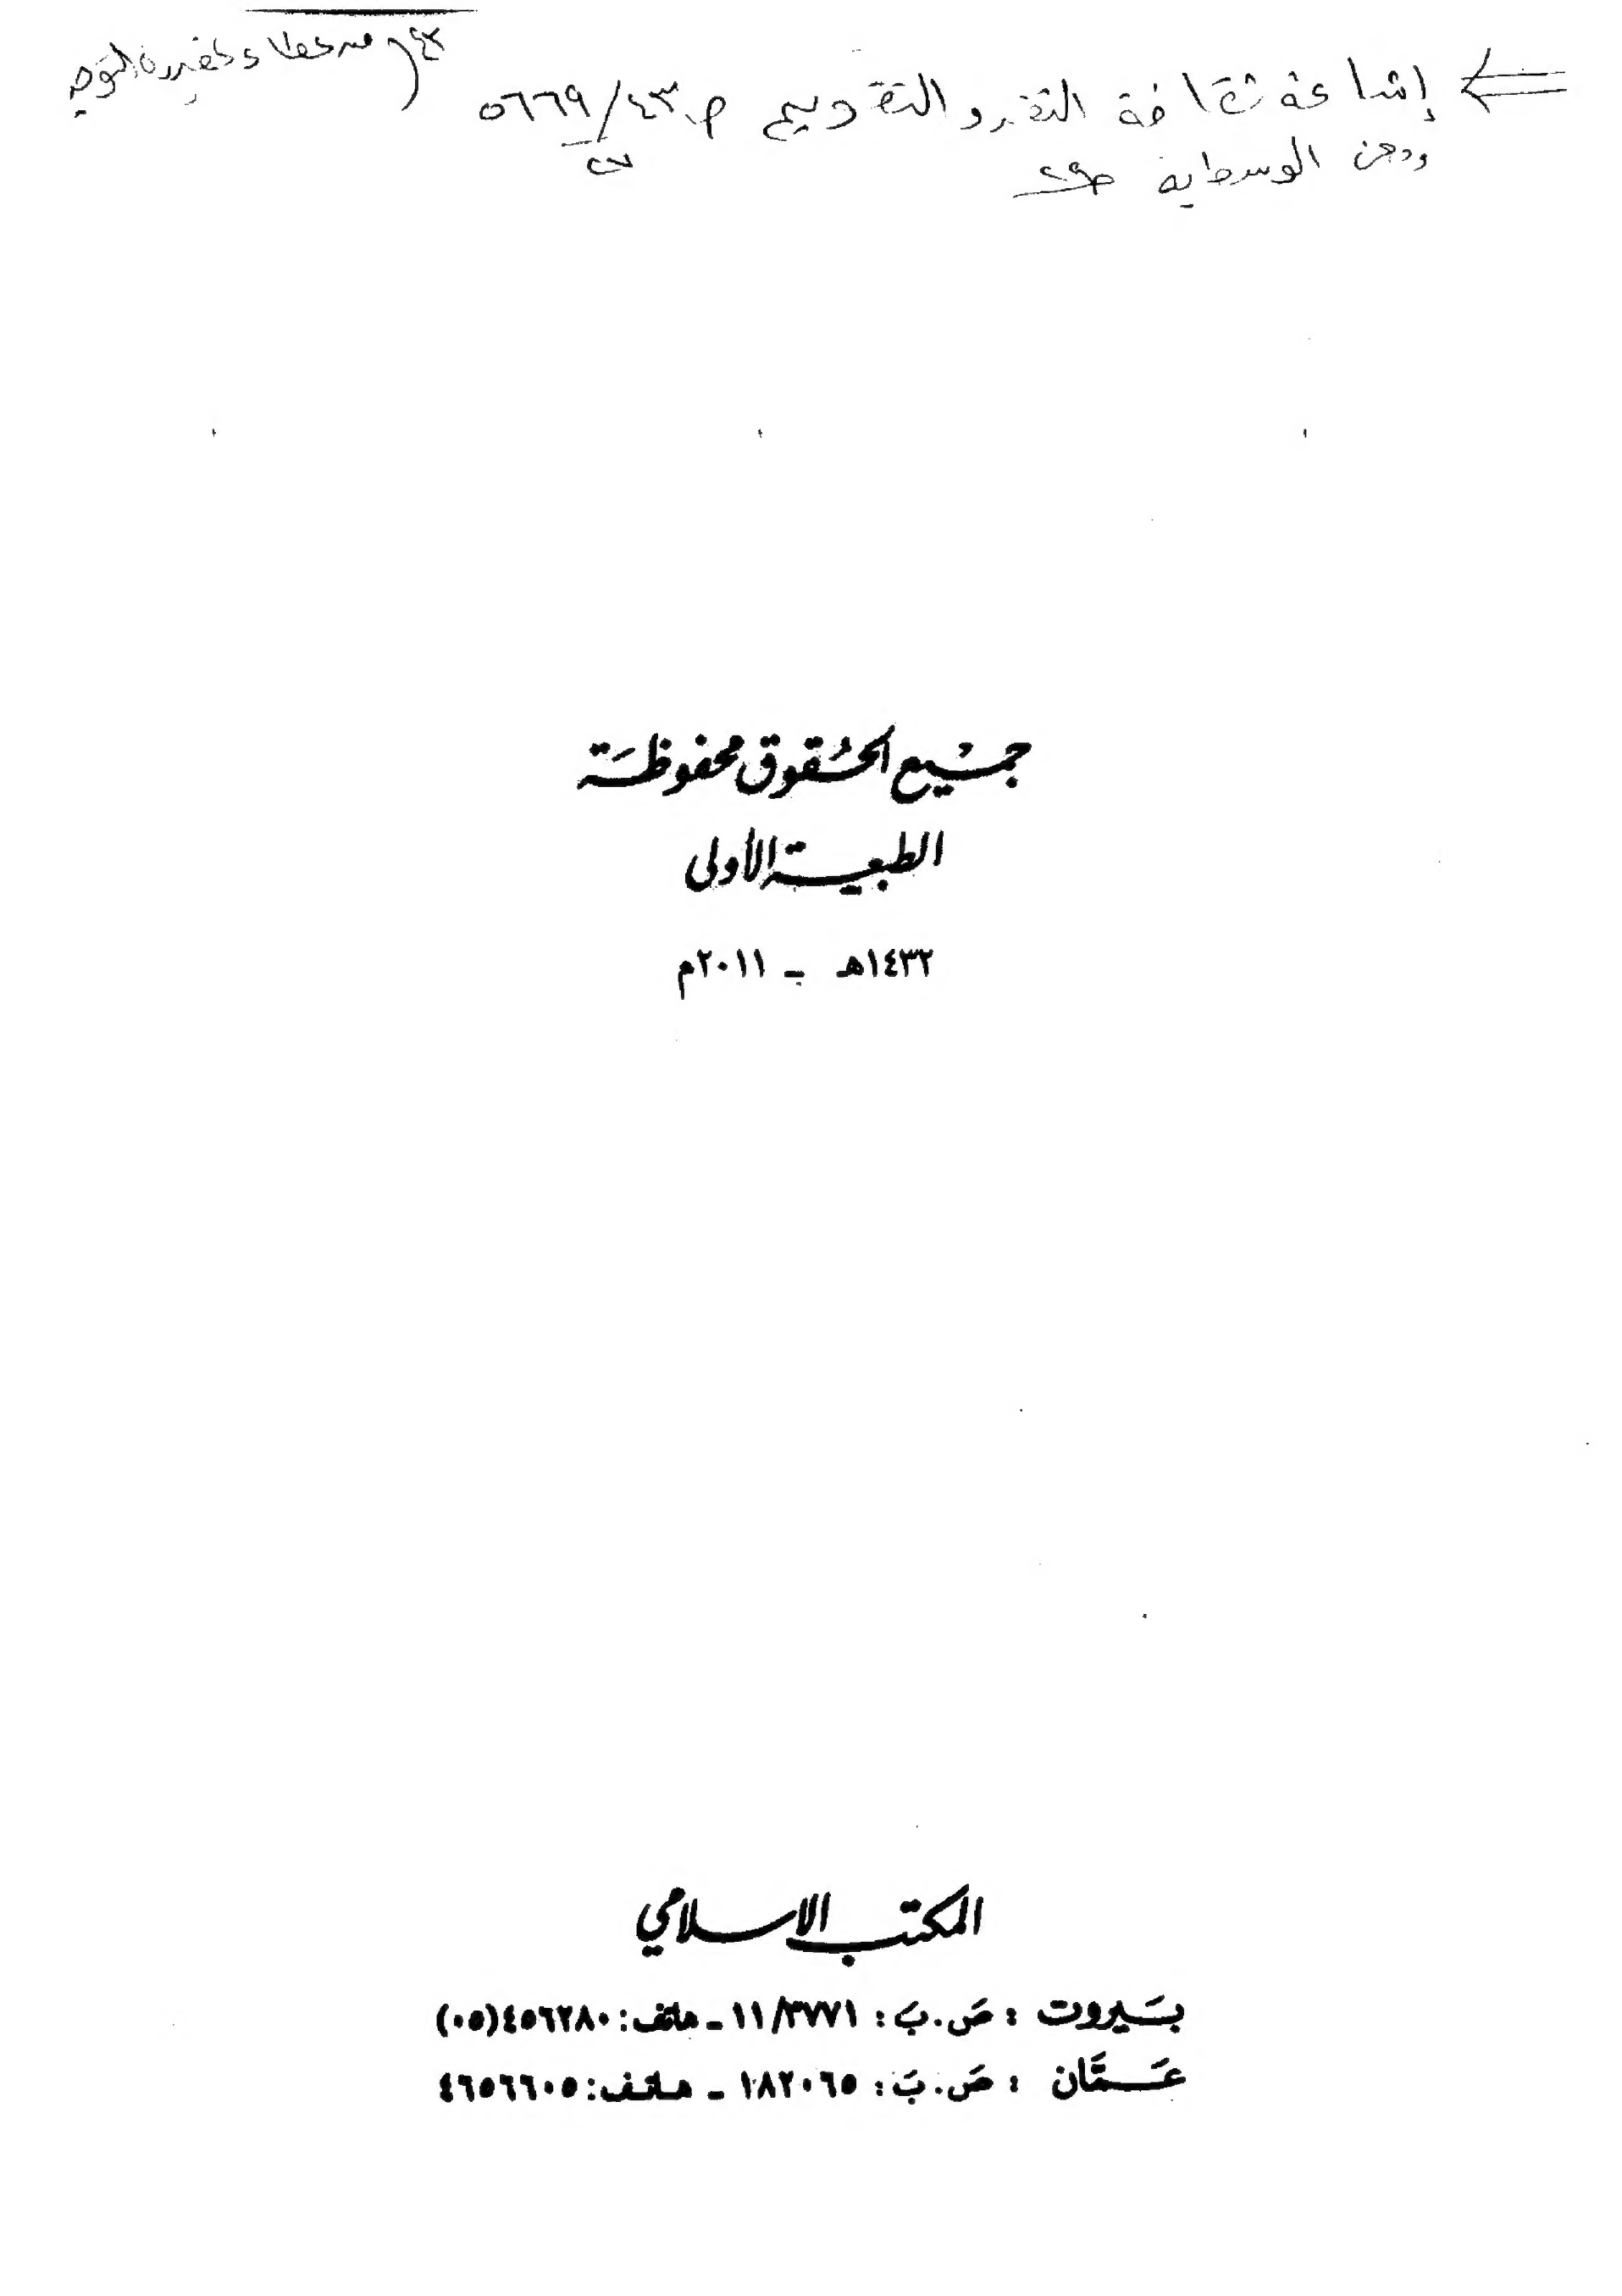 إشاعة ثقافة النقد والتقويم ص ٤٣/٥٦٦٩
الوسطية ص ٢٩
جميع الحقوق محفوظة
الطبعة الأولى
١٤٣٢هـ - ٢٠١١م
المكتب الاسلامي
بَيروت : صَ.بَ : ١١/٣٧٧١ - هاتف: ٤٥٦٢٨٠(٠٥)
عَمَّان : صَ.بَ : ١٨٢٠٦٥ - هاتف: ٤٦٥٦٦٠٥